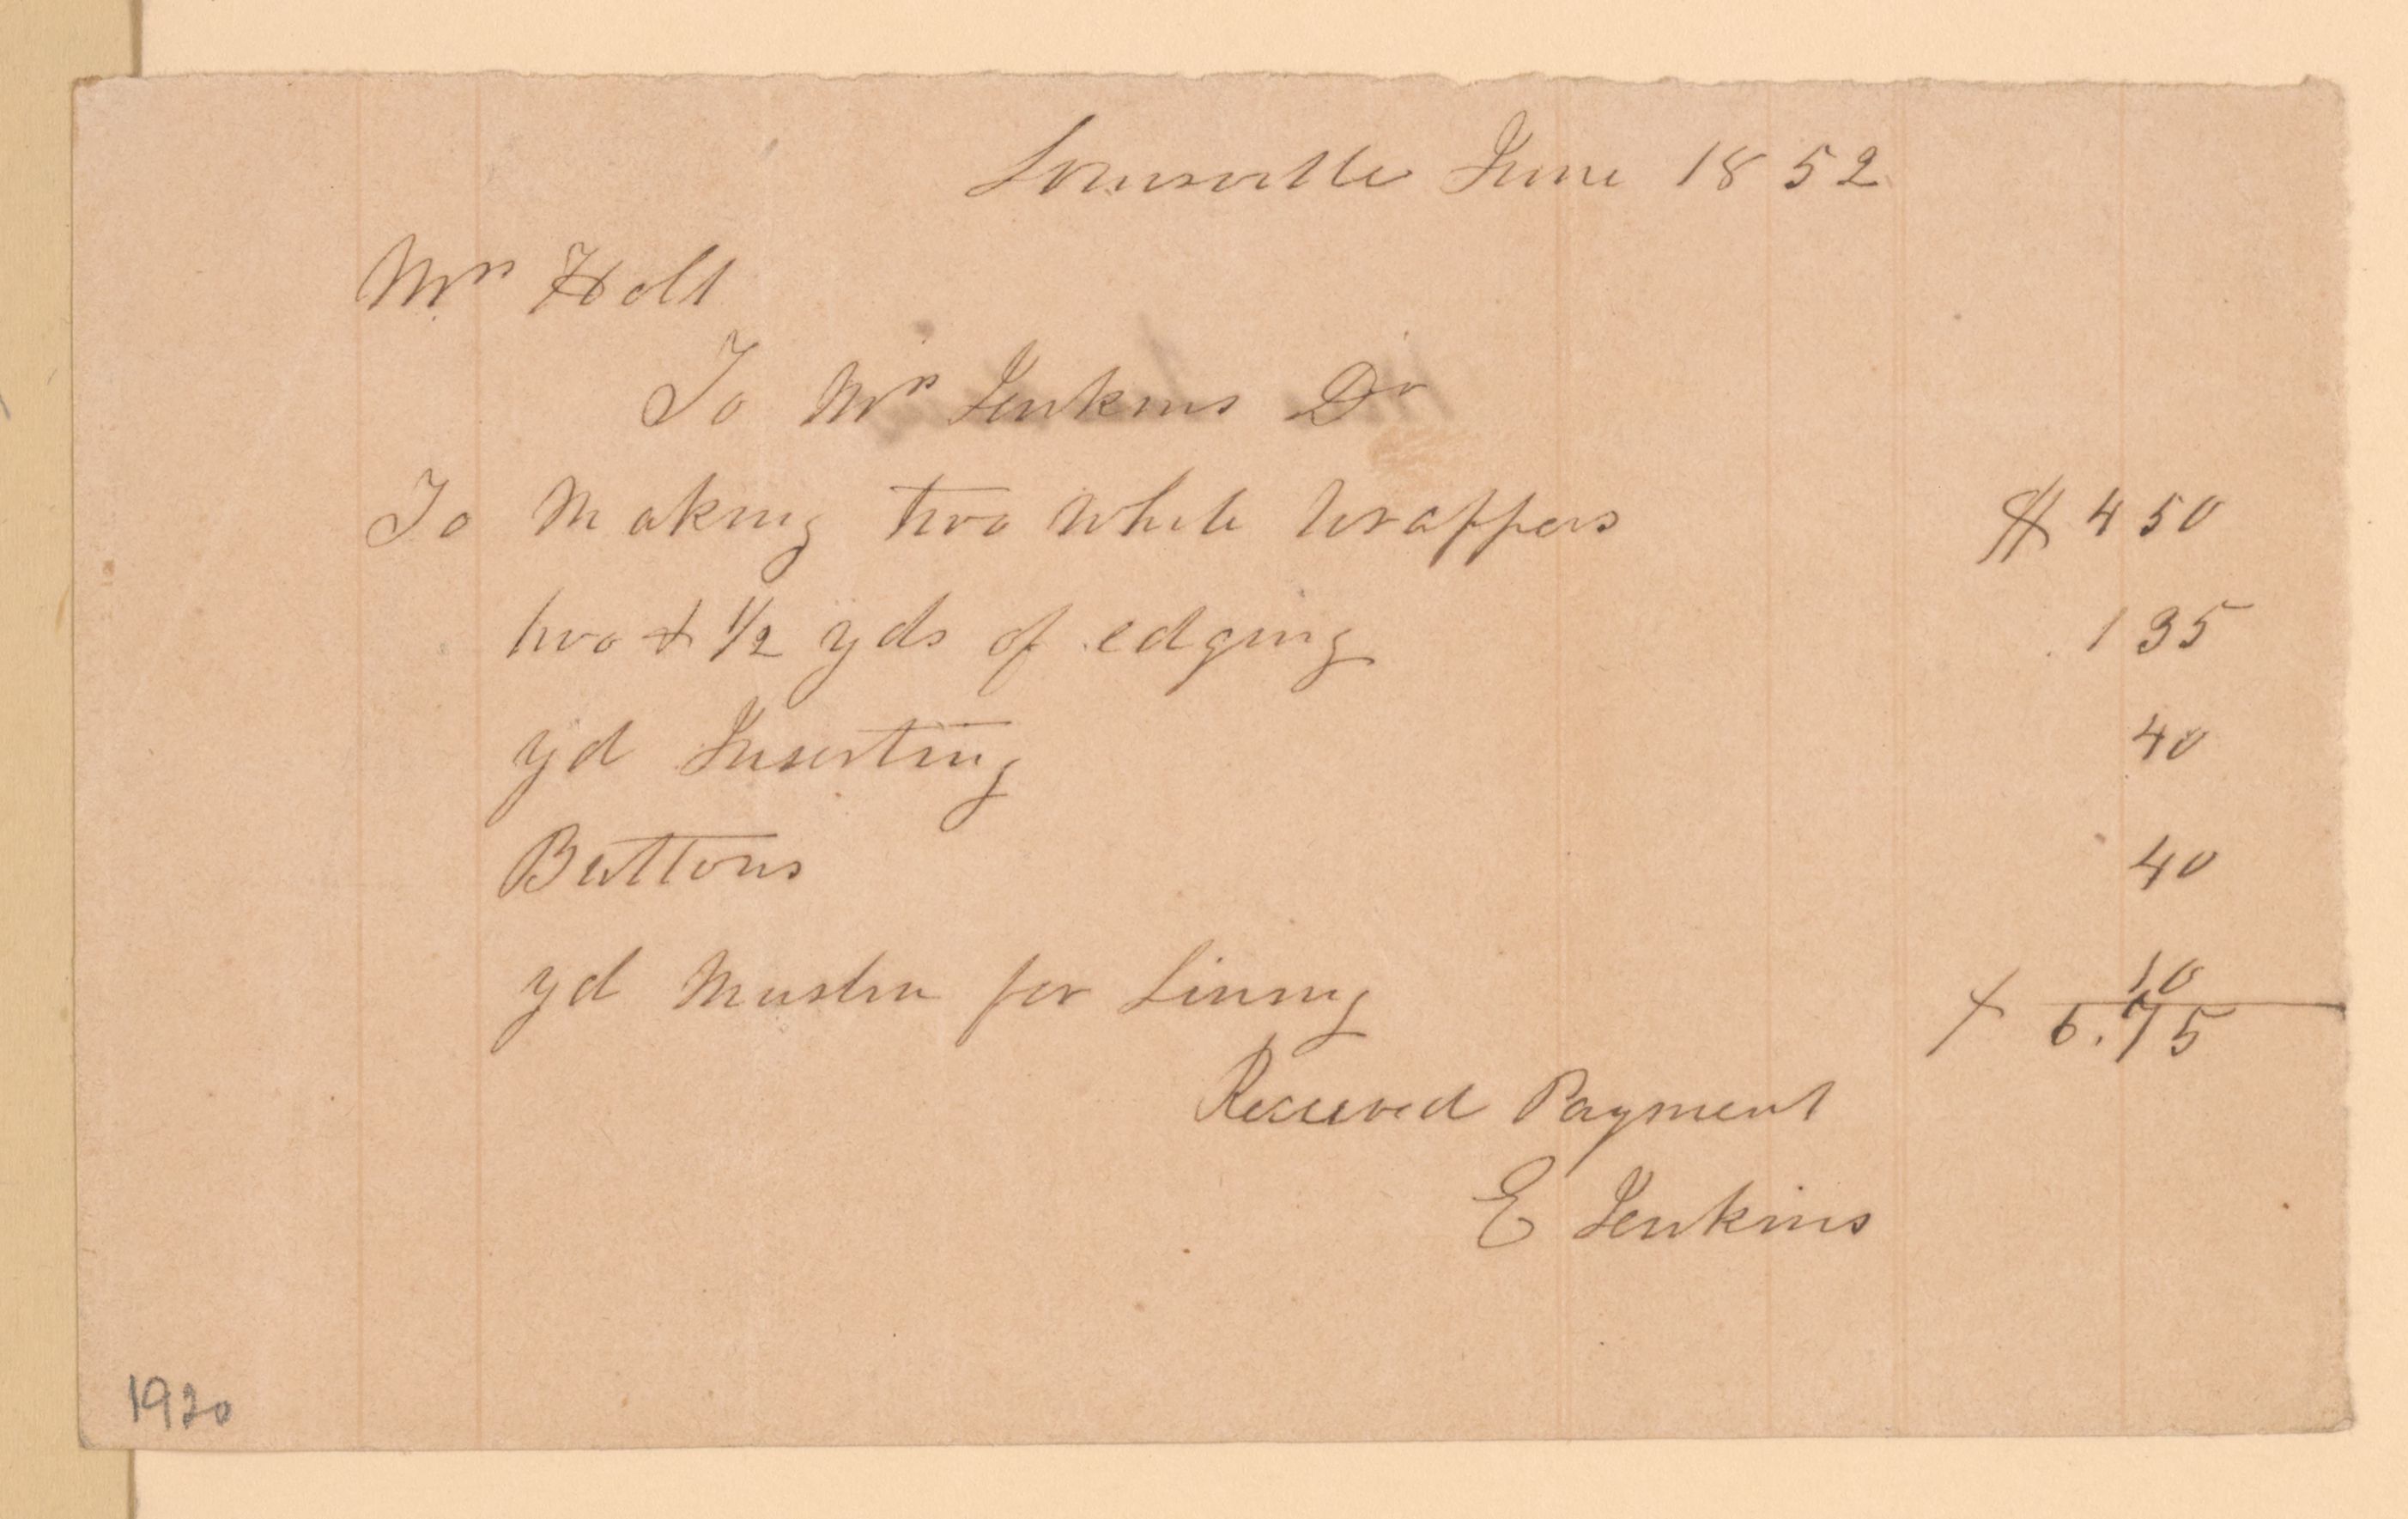 Louisville June 1852
Mrs Holt
To Mrs Jenkins Dr
To Making two white wrappers $ 4 50
two & 1/2 yds of edging 1 35
yd Inserting 40
Buttons 40
yd Muslin for Lining 10
6.75
Received Payment
E Jenkins
1920